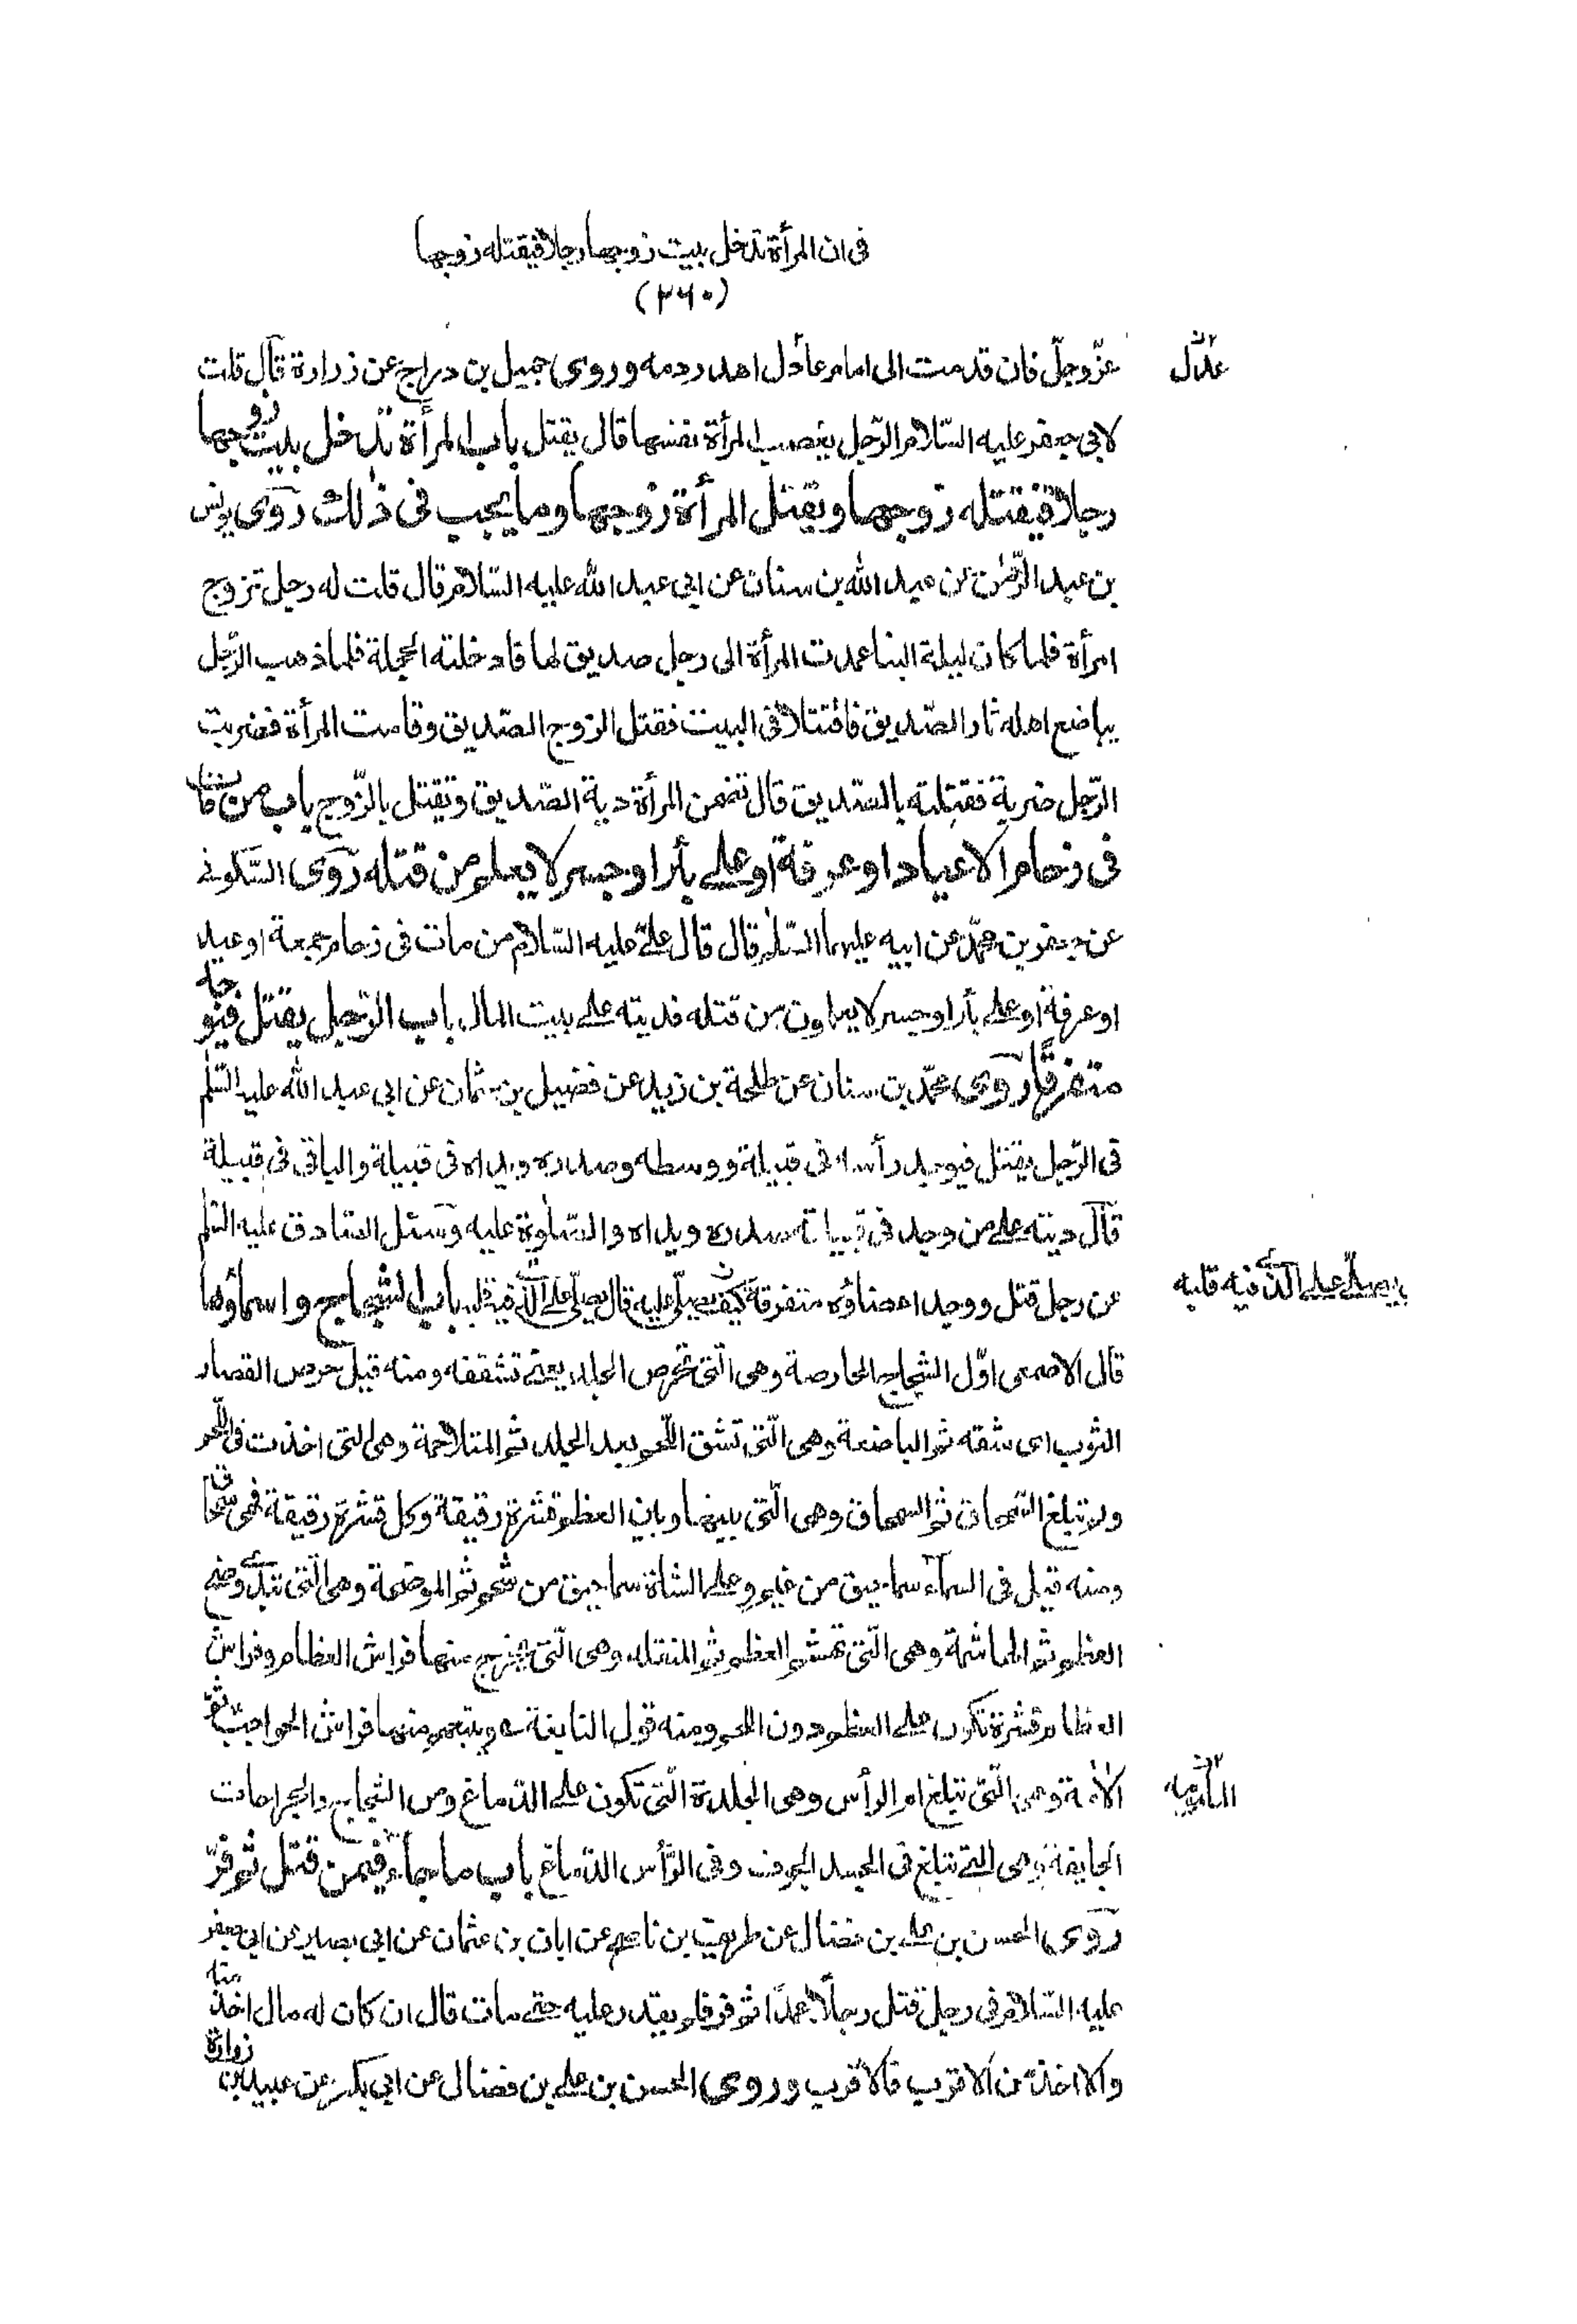 فى ان المرأة تدخل بيت زوجها رجلا فيقتله زوجها
(٢٦٠)
عزّ وجلّ فان قدمت الى امام عادل اهدر دمه وروى جميل بن دراج عن زرارة قال قلت
عدل
لابى جعفر عليه السّلام الرّجل يغصب المرأة نفسها قال يقتل باب المرأة تدخل بيت زوجها
رجلا فيقتله زوجها وتقتل المرأة زوجها وما يجب فى ذلك روى يونس
بن عبد الرّحمن عن عبد الله بن سنان عن ابى عبد الله عليه السّلام قال قلت له رجل تزوج
امرأة فلما كان ليلة البنا عمدت المرأة الى رجل صديق لها فادخلته الحجلة فلما ذهب الرّجل
يباضع اهله ثار الصّديق فاقتتلا فى البيت فقتل الزوج الصّديق وقامت المرأة فضربت
الرّجل ضربة فقتلته بالصّديق قال تضمن المرأة دية الصّديق وتقتل بالزّوج باب من مات
فى زحام الاعياد او عرفة او على بئر او جسر لا يعلم من قتله روى السّكونى
عن جعفر بن محمّد عن ابيه عليهما السّلم قال قال علىّ عليه السّلام من مات فى زحام جمعة او عيد
او عرفة او على بئر او جسر لا يعلمون من قتله فديته على بيت المال باب الرّجل يقتل فيوجد
متفرقًا روى محمّد بن سنان عن طلحة بن زيد عن فضيل بن عثمان عن ابى عبد الله عليه السّلم
فى الرّجل يقتل فيوجد رأسه فى قبيلة ووسطه وصدره ويداه فى قبيلة والباقى فى قبيلة
قال ديته على من وجد فى قبيلته صدره ويداه والصّلوة عليه وسئل الصّادق عليه السّلم
عن رجل قتل ووجد اعضاؤه متفرقة كيف يصلّى عليه قال يصلّى على الّذى فيه قلبه باب الشجاج واسماؤها
يصلّى على الّذى فيه قلبه
قال الاصمعى اوّل الشجاج الحارصة وهى الّتى تحرص الجلد يعنى تشققه ومنه قيل حرص القصار
الثوب اى شقه ثم الباضعة وهى الّتى تشق اللّحم بعد الجلد ثم المتلاحمة وهى التى اخذت فى اللّحم
ولم تبلغ السّمحاق ثم السمحاق وهى الّتى بينها وبين العظم قشرة رقيقة وكل قشرة رقيقة فهى سمحاق
ومنه قيل فى السمآء سماحيق من غيم وعلى الشاة سماحيق من شحم ثم الموضحة وهى الّتى تبدى وضح
العظم ثم الهاشمة وهى الّتى تهشم العظم ثم المنقلة وهى الّتى يخرج منها فراش العظام وفراش
العظام قشرة تكون على العظم دون اللحم ومنه قول النابغة ع ويتبعهم منها فراش الحواجب ثم
الآمّة وهى الّتى تبلغ ام الرأس وهى الجلدة الّتى تكون على الدّماغ ومن الشجاج والجراحات
المأمومة
الجايفة وهى الّتى تبلغ فى الجسد الجوف وفى الرّأس الدّماغ باب ما جاء فيمن قتل ثم فرّ
روى الحسن بن على بن فضال عن ظريف بن ناصح عن ابان بن عثمان عن ابى بصير عن ابى جعفر
عليه السّلام فى رجل قتل رجلًا عمدًا ثم فر فلم يقدر عليه حتى مات قال ان كان له مال اخذ منه
والا اخذ من الاقرب فالاقرب وروى الحسن بن على بن فضال عن ابى بكير عن عبيد بن زرارة